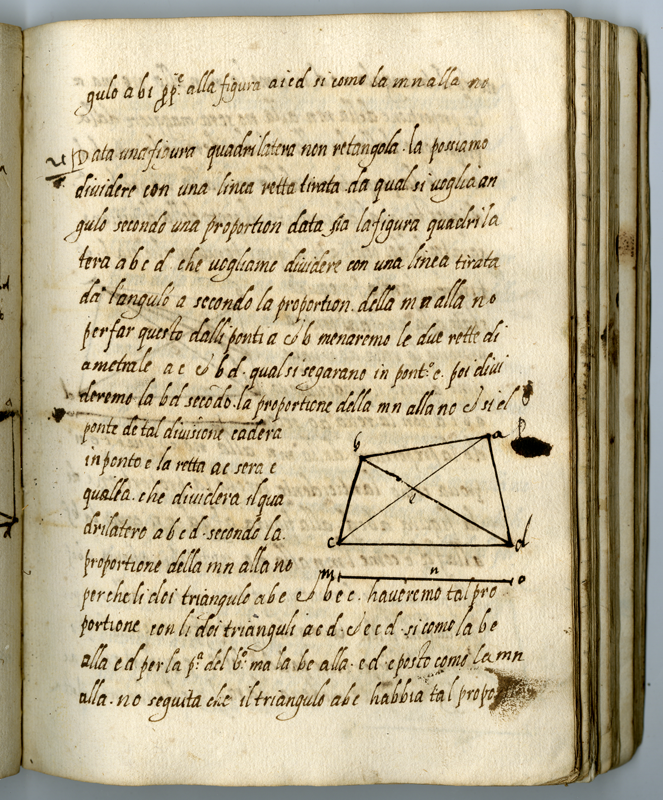 gulo a b i alla figura a i c d si como la m n alla no
Data una figura quadrilatera non retangola. la possiamo
dividere con una linea retta tirata da qual si voglia an
gulo secondo una proportion data sia la figura quadrila
tera a b c d che vogliamo dividere con una linea tirata
da l'angulo a secondo la proportion. della m n alla n o
per far questo dalli ponti a & b menaremo le due rette di
ametrale a c & b d. qual si segarano in pont.º e. poi divi
deremo la b d secõdo. la proportione della m n alla no & si el
ponte de tal divisione cadera
in ponto e la retta a c sera e
quella. che dividera il qua
drilatero a b c d. secondo la.
proportione della m n alla no
b
a
e
c
d
m
n
o
perche li doi triangulo a b e & b e c. haveremo tal pro
portione con li doi trianguli a e d & e c d. si como la b e
alla e d per la p.ª del 6.º ma la be alla. e d. e posto como la m n
alla. no seguita che il triangulo abc habbia tal propo